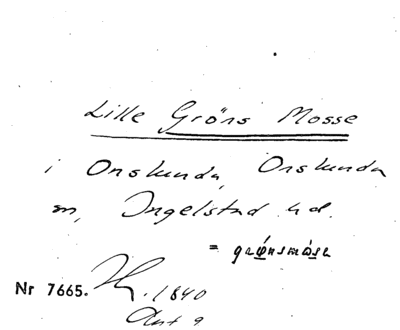 Lille Gröns Mosse
i Onslunda, Onslunda
sn, Ingelstad hd.
=
Nr 7665. H. 1840
Akt 9